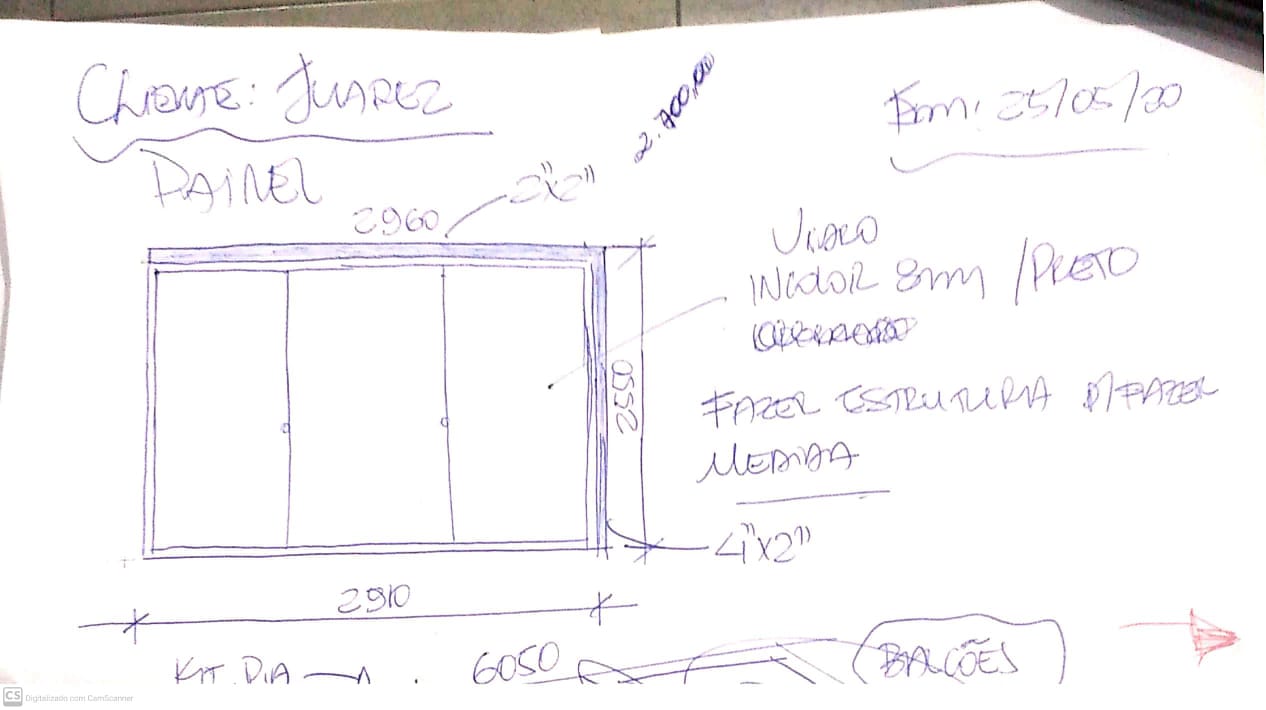 CLIENTE: JUAREZ
Em: 25/05/20
2.700,00
PAINEL
2"x2"
2960
VIDRO
INCOLOR 8mm /PRETO
FAZER ESTRUTURA P/FAZER
MEDIDA
2550
4"x2"
2910
KIT. DIA
6050
BALCÕES
CS Digitalizado com CamScanner